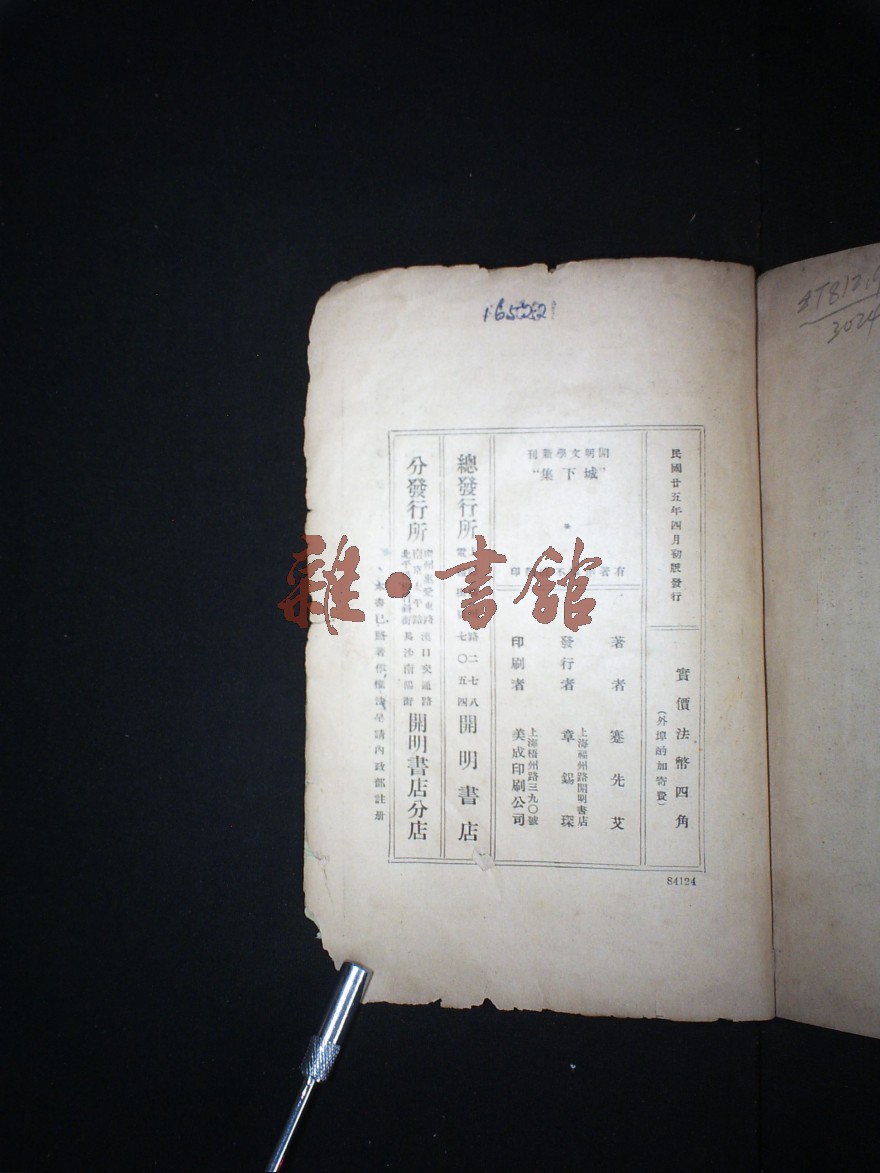 16522
民國廿五年四月初版發行
實價法幣四角
(外埠酌加寄費)
開明文學新刊
“城下集”
有著
印
著者 蹇先艾
發行者 章錫琛
上海福州路開明書店
印刷者 美成印刷公司
上海梧州路三九〇號
總發行所
路二七八
七〇五四
開明書店
分發行所
廣州惠愛東路漢口交通路
長沙南陽街
開明書店分店
呈請內政部註冊
84124
雜·書館
3024